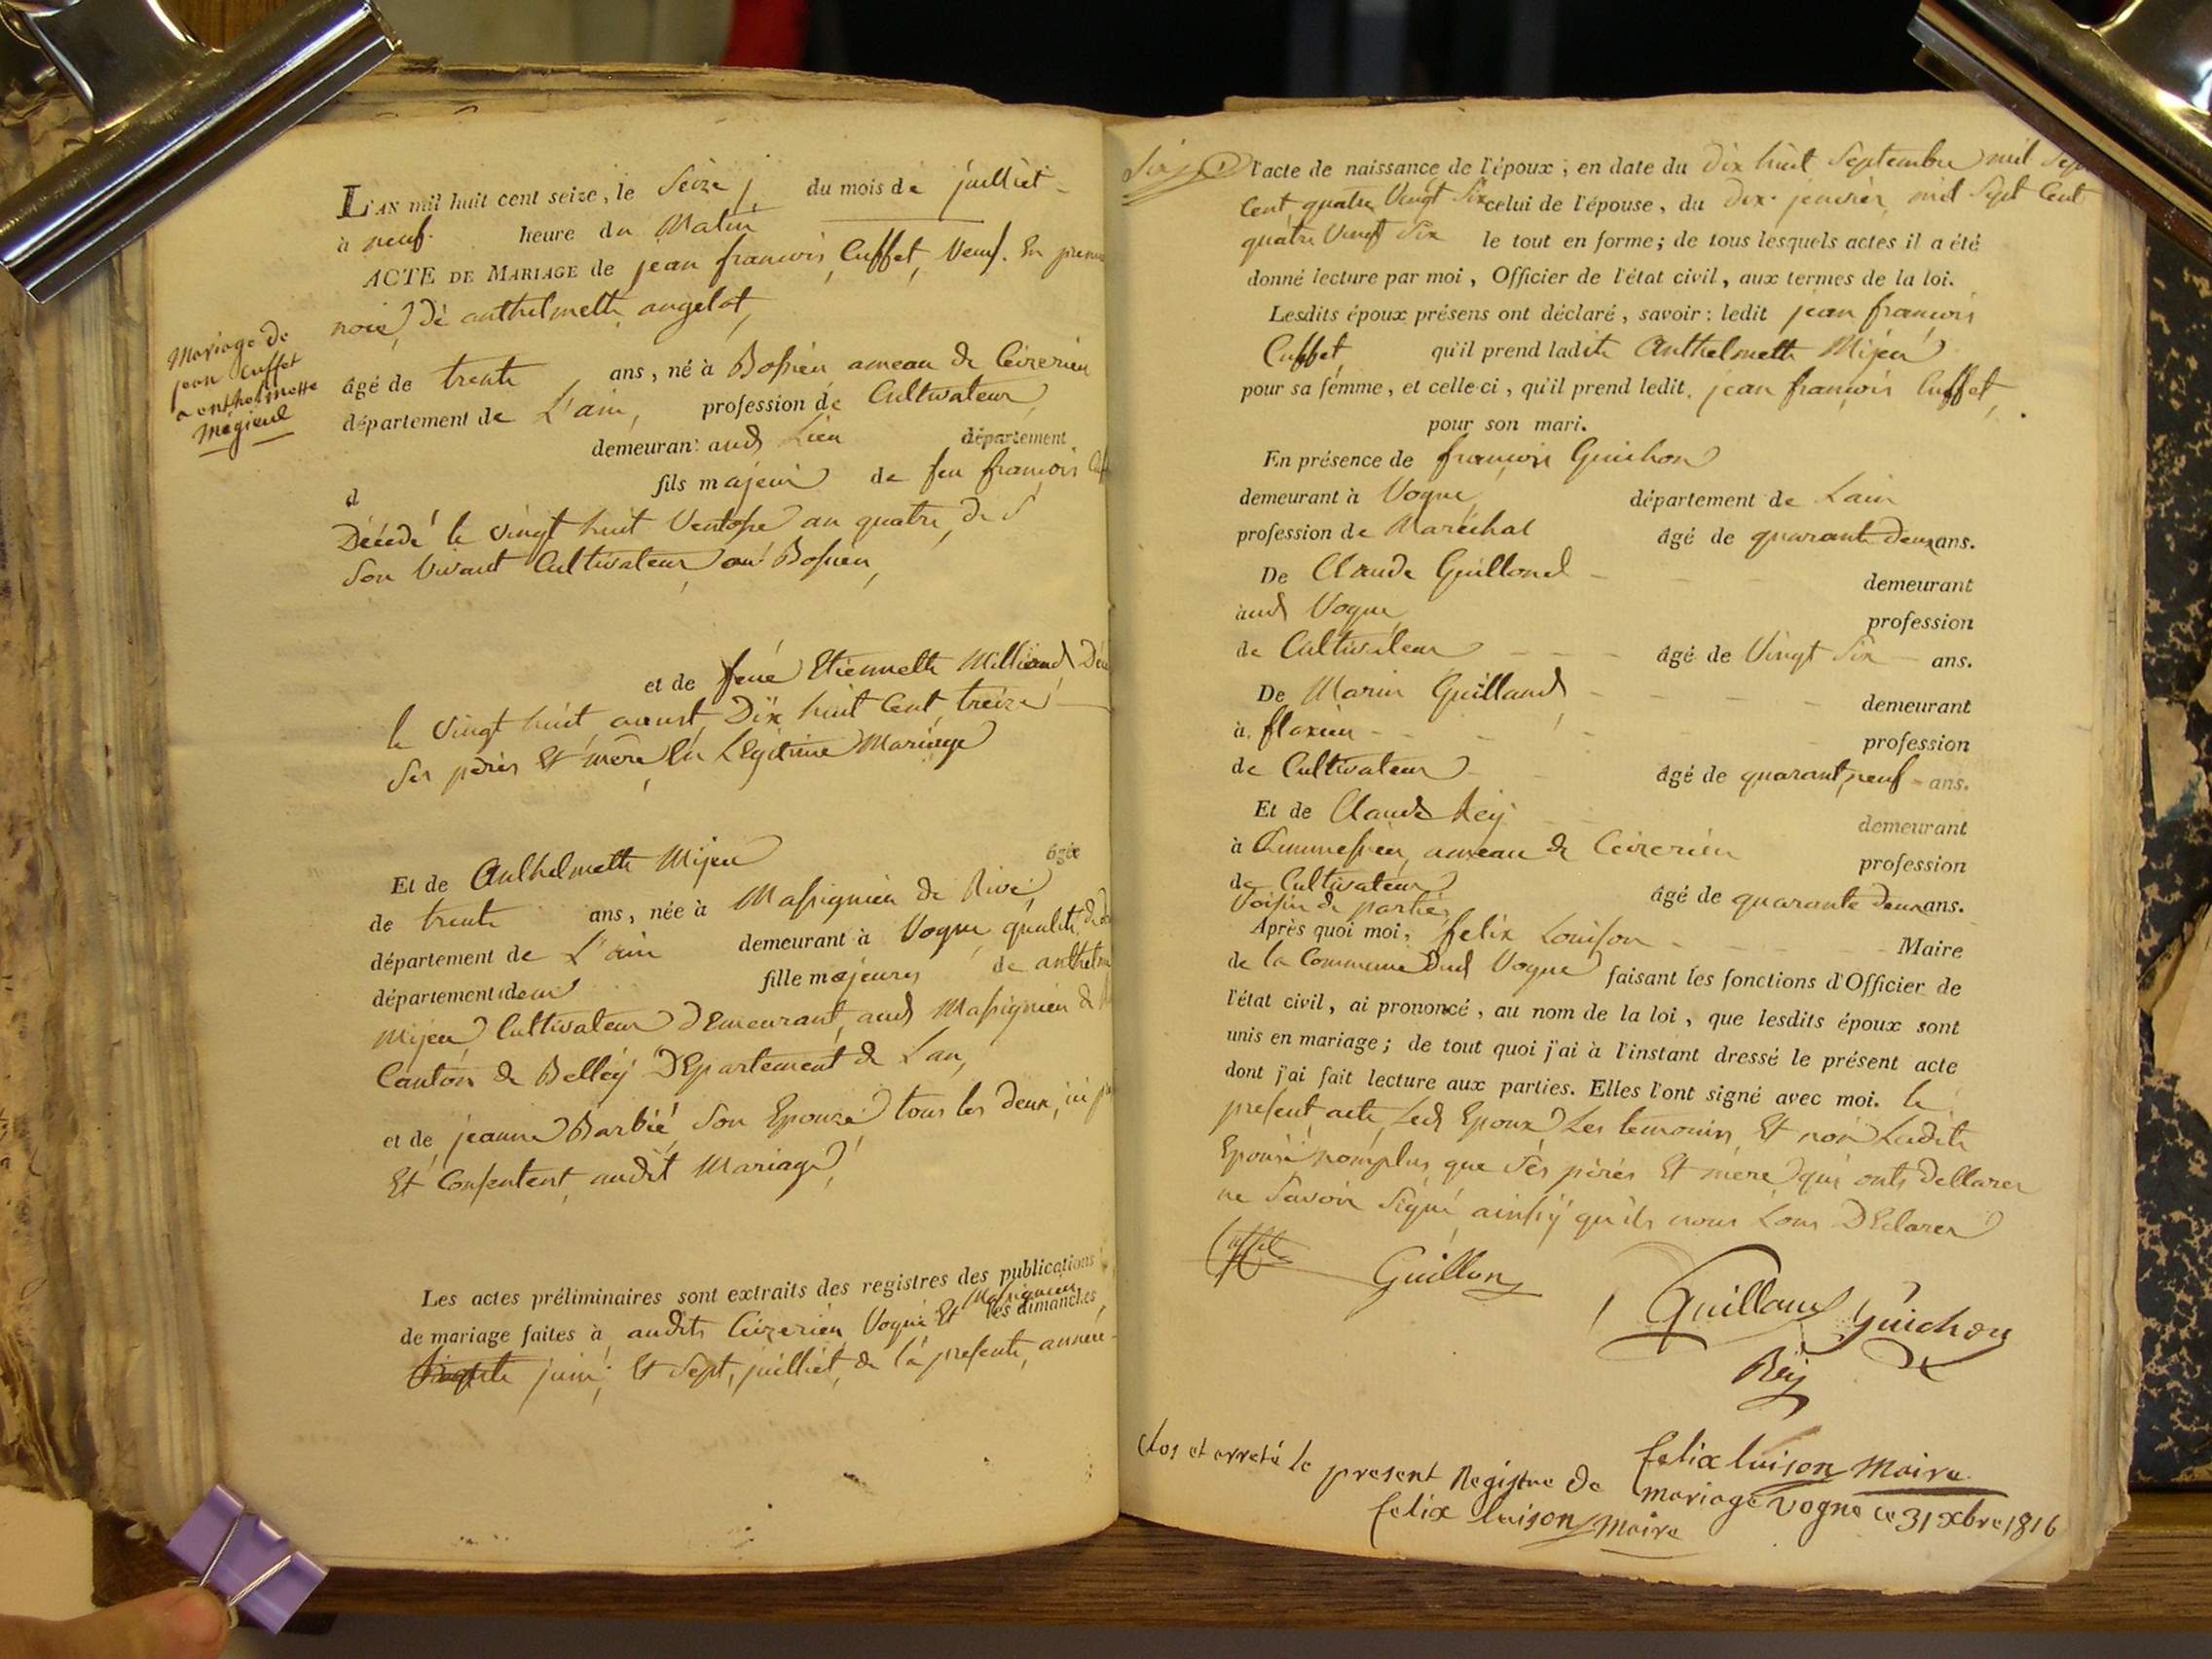 Mariage de
jean Cuffet
a enthelmette
Mégieul
L'AN mil huit cent seize, le Seize du mois de juilliet
à neuf heure du Matin
ACTE DE MARIAGE de jean francois Cuffet, Veuf. En premie
noie de anthelmette angelot,
âgé de trente ans, né à Bossieu ameau de Ceizerieu
département de L'ain, profession de Cultivateur
demeurant aud Lieu département
d fils majeur de feu francois
Décédé le vingt huit Ventose an quatre, de S
Son Vivant Cultivateur au Bossieu,
et de feue Etiennette Milliand Déc
le vingt huit aoust Dix huit Cent treize
Ses pères Et mère En Legitime Mariage
Et de Anthelmette Mijeu âgée
de trente ans, née à Massignieu de Rive
département de L'ain demeurant à Vogne qualité de
département idem fille majeure de anthelme
Mijeu Cultivateur Demeurant aud Massignieu de
Canton de Belley Département de Lan,
et de jeanne Barbié Son Epouze tous les deux, ici
Et Consentent audit Mariage
Les actes préliminaires sont extraits des registres des publications
Massignieu
de mariage faites à audits Ceizerieu Vogne Et les dimanches
juin; Et Sept, juilliet, de la presente année
l'acte de naissance de l'époux; en date du dix huit Septembre mil Sept
Cent quatre Vingt Six celui de l'épouse, du Dix janvier mil Sept Cent
quatre Vingt Six le tout en forme; de tous lesquels actes il a été
donné lecture par moi, Officier de l'état civil, aux termes de la loi.
Lesdits époux présens ont déclaré, savoir: ledit jean francois
Cuffet qu'il prend ladite Anthelmette Mijeu
pour sa femme, et celle-ci, qu'il prend ledit jean francois Cuffet,
pour son mari.
En présence de francois Guichon
demeurant à Vogne département de Lain
profession de Maréchal âgé de quarante deux ans.
De Claude Guillond demeurant
aud Vogne profession
de Cultivateur âgé de Vingt Six ans.
De Marin Guilland demeurant
à flaxieu profession
de Cultivateur âgé de quarant neuf ans.
Et de Claude Rey demeurant
à ameau de Ceizerieu profession
de Cultivateur âgé de quarante deux ans.
Voisin de partie
Après quoi moi, felix Louison Maire
de la Commune Dud Vogne faisant les fonctions d'Officier de
l'état civil, ai prononcé, au nom de la loi, que lesdits époux sont
unis en mariage; de tout quoi j'ai à l'instant dressé le présent acte
dont j'ai fait lecture aux parties. Elles l'ont signé avec moi. le
present acte Led Epoux Les temouins Et non Ladite
Epouse nomplus que Ses pères Et mère qui onts dellarer
ne Savoir Signé ainsiy qu'ils nous Lons Déclarer
Cuffet
Guillon
Guilland Guichon
Rey
felix luison Maire
Clos et arreté le present Registre de mariage Vogne ce 31 xbre 1816
felix luison Maire